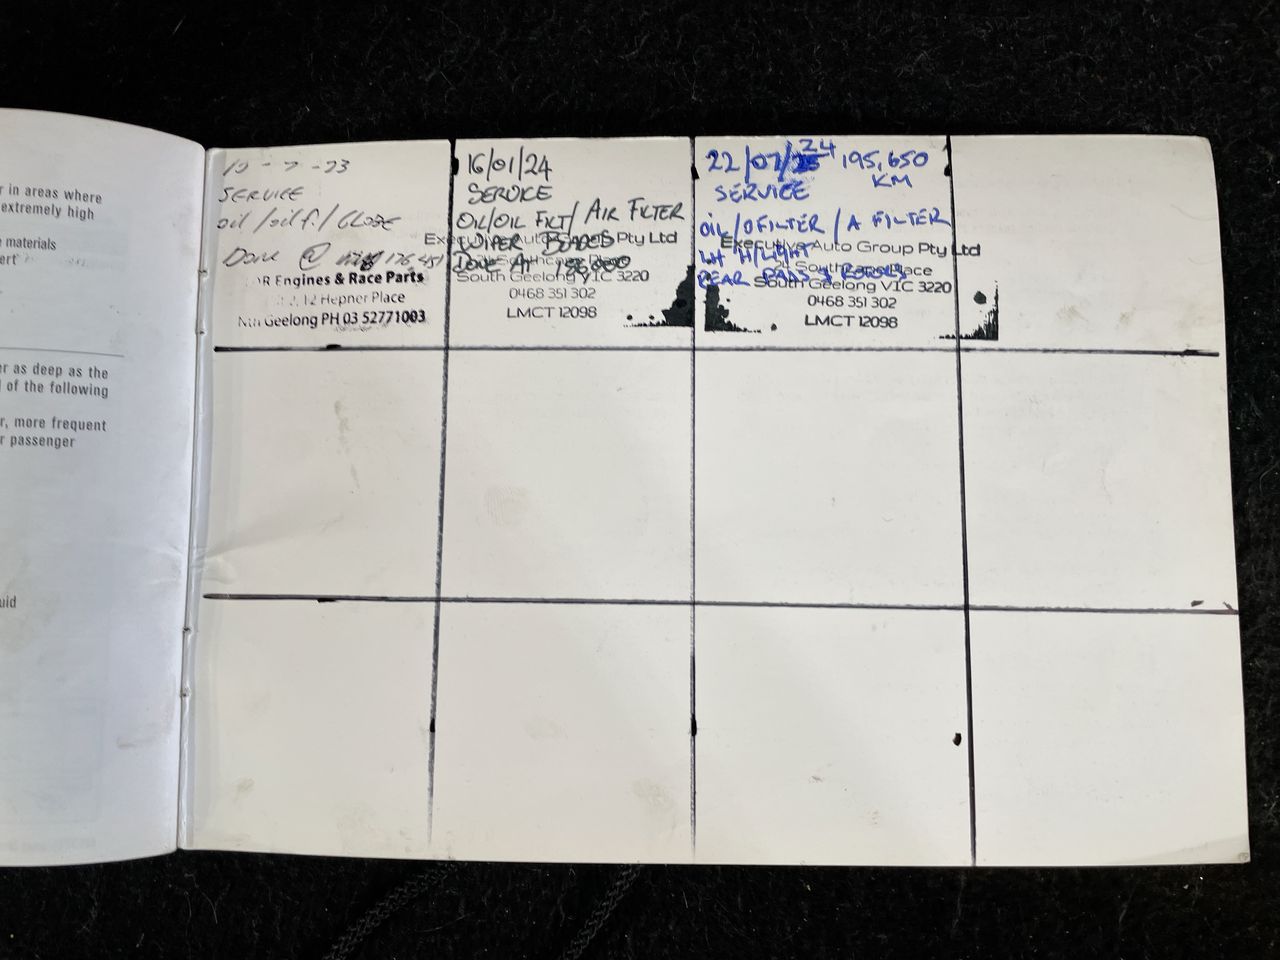 r in areas where
extremely high
materials
ert
er as deep as the
l of the following
r, more frequent
r passenger
uid
- 7 - 23
SERVICE
oil / oil f. /
Done @ 176,451
R Engines & Race Parts
12 Hepner Place
Nth Geelong PH 03 52771003
16/01/24
SERVICE
OIL/OIL FILT/ AIR FILTER
WIPER BLADES
DONE AT
Executive Auto Group Pty Ltd
South Geelong VIC 3220
0468 351 302
LMCT 12098
22/07/24 195,650
KM
SERVICE
OIL/OFILTER / A FILTER
LH H/LIGHT
REAR PADS & ROTORS
Executive Auto Group Pty Ltd
South Geelong VIC 3220
0468 351 302
LMCT 12098